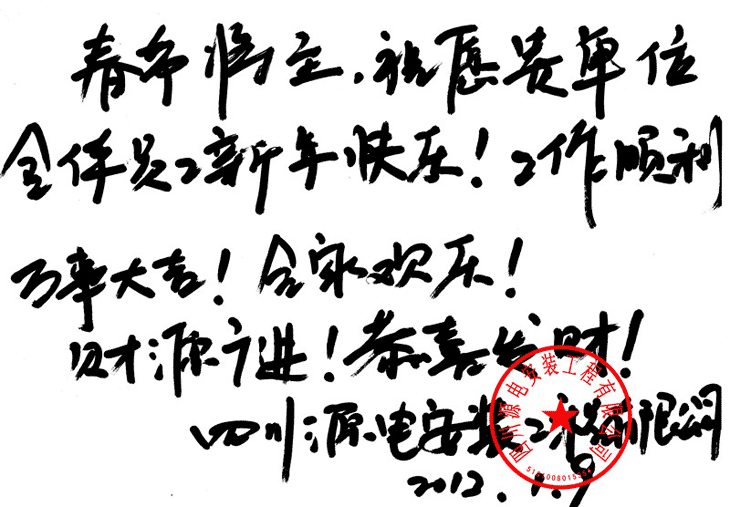 春节将至,祝愿贵单位
全体员工新年快乐!工作顺利
万事大吉!合家欢乐!
财源广进!恭喜发财!
四川源电安装工程有限公司
2012.1.9
四川源电安装工程有限公司